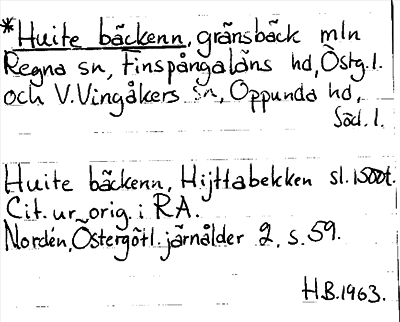 *Huite bäckenn, gränsbäck mln
Regna sn, Finspångaläns hd, Östg.l.
och V.Vingåkers sn, Oppunda hd,
Söd.l.
Huite bäckenn, Hijttabekken sl.1500t.
Cit.ur orig. i RA.
Nordén, Östergötl. järnålder 2, s.59.
H.B.1963.